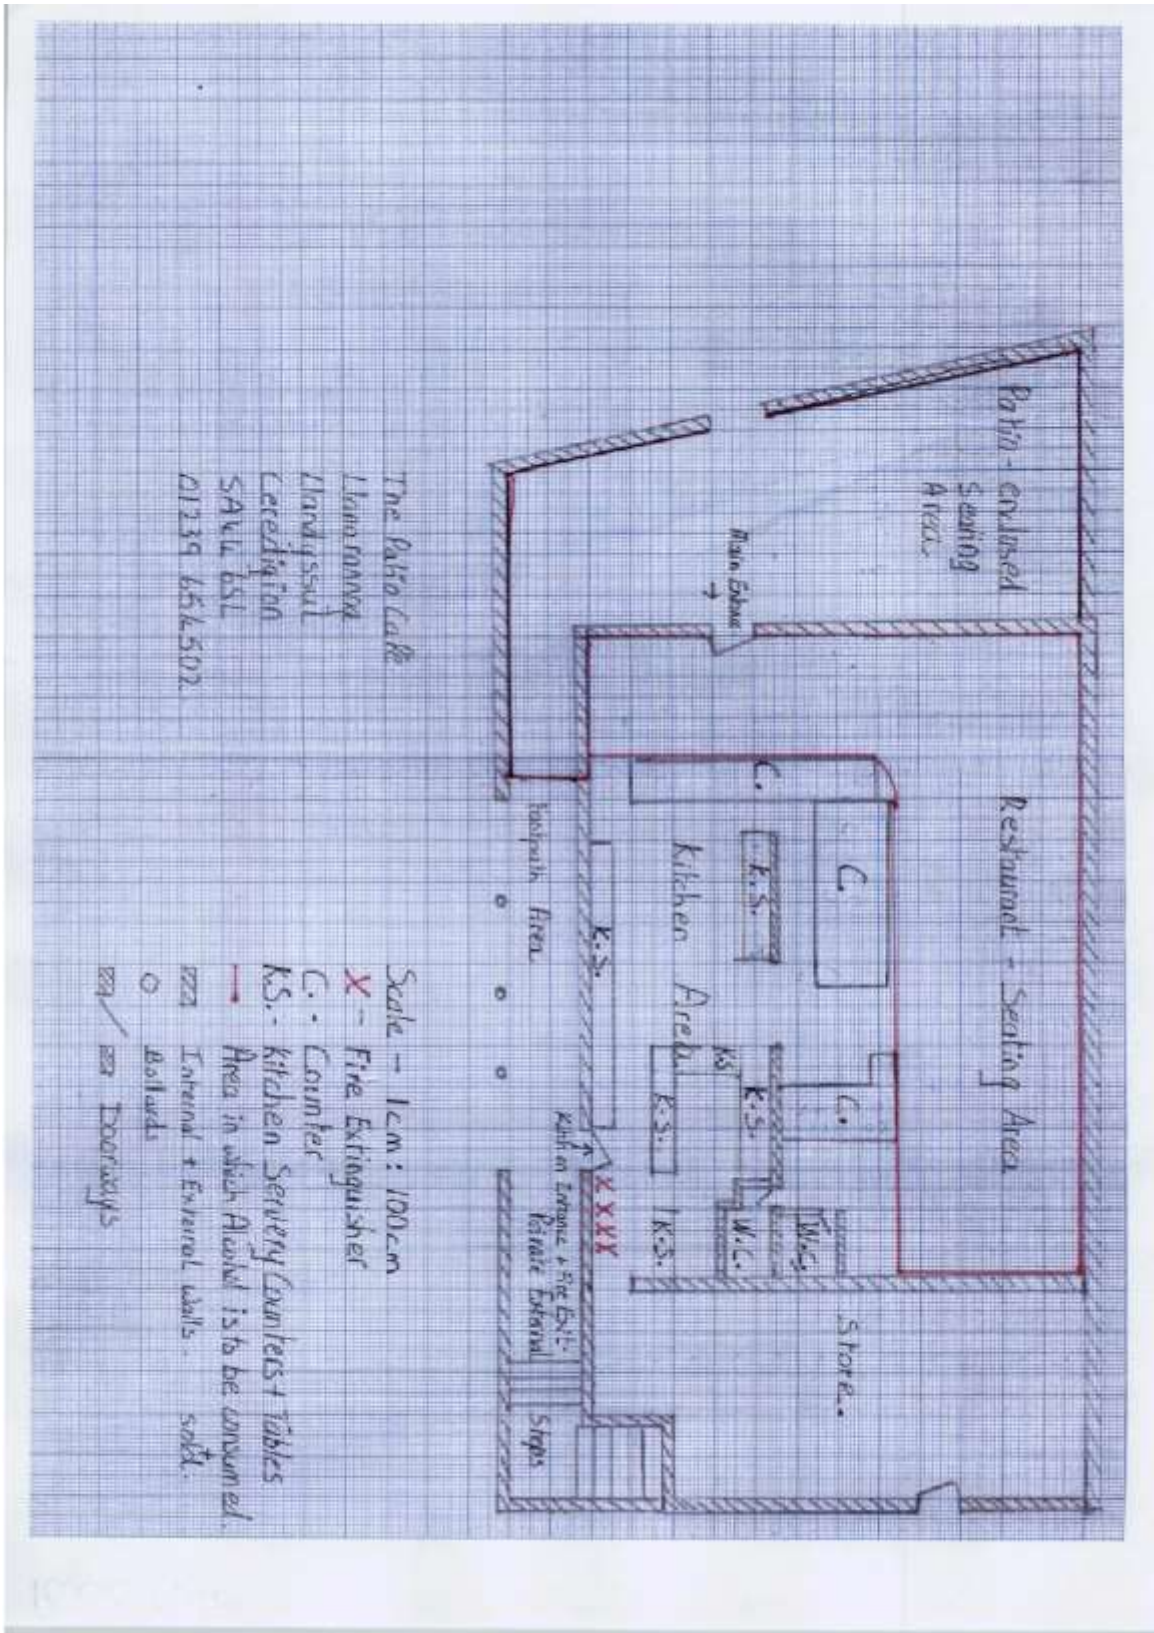 Patio - enclosed
Seating
Area
Main Entrance
Restaurant - Seating Area
C.
C.
C.
K.S.
Kitchen Area
K.S.
KS
K.S.
K.S.
K.S.
W.C.
W.C.
XXXX
Store.
Footpath Area
Kitchen Entrance + Fire Exit-
Private External
Steps
The Patio Cafe
Llangrannog
Llandyssul
Ceredigion
SA44 6SL
01239 654502
Scale - 1cm : 100cm
X - Fire Extinguisher
C. - Counter
K.S. - Kitchen Servery Counters + Tables
Area in which Alcohol is to be consumed
+ sold.
Internal + External walls.
Bollards
Doorways